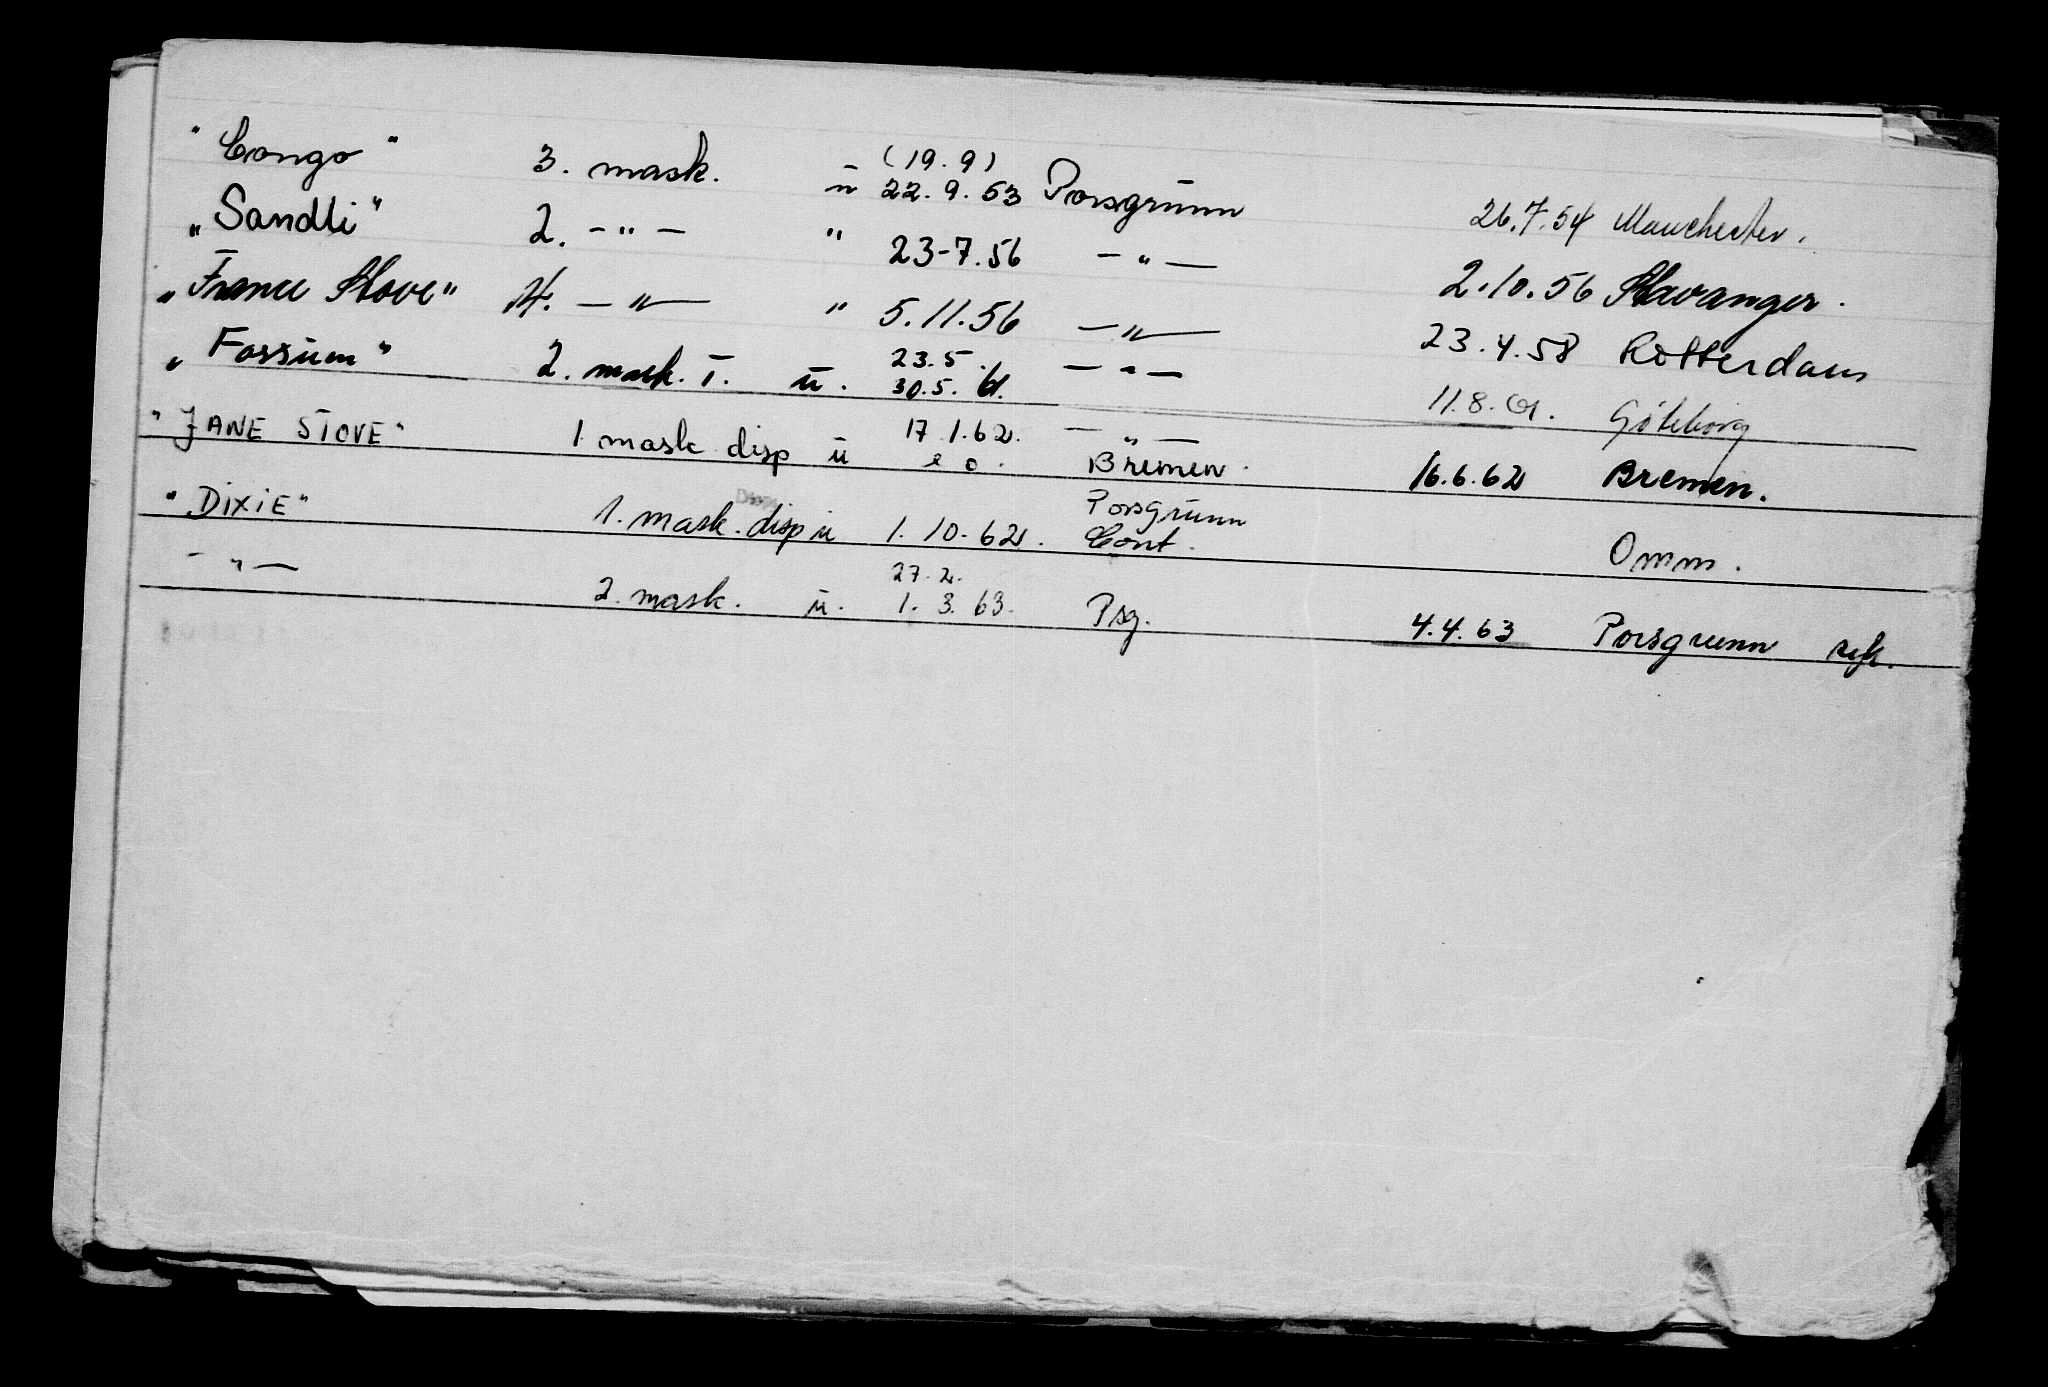 "Congo" 3. mask. u (19.9) 22.9.53 Porsgrunn 26.7.54 Manchester.
"Sandli" 2. -"- " 23-7.56 -"- 2.10.56 Stavanger.
"France Stove" 4. -"- " 5.11.56 -"- 23.4.58 Rotterdam
"Fossum" 2. mask. T. u. 23.5. 30.5.61. -"- 11.8.61. Göteborg
"JANE STOVE" 1. mask disp u 17.1.62. -"- Bremen. 16.6.62 Bremen.
"DIXIE" 1. mask. disp u 1.10.62. Porsgrunn Cont. Omm.
-"- 2. mask. u. 27.2. 1.3.63. Psg. 4.4.63 Porsgrunn